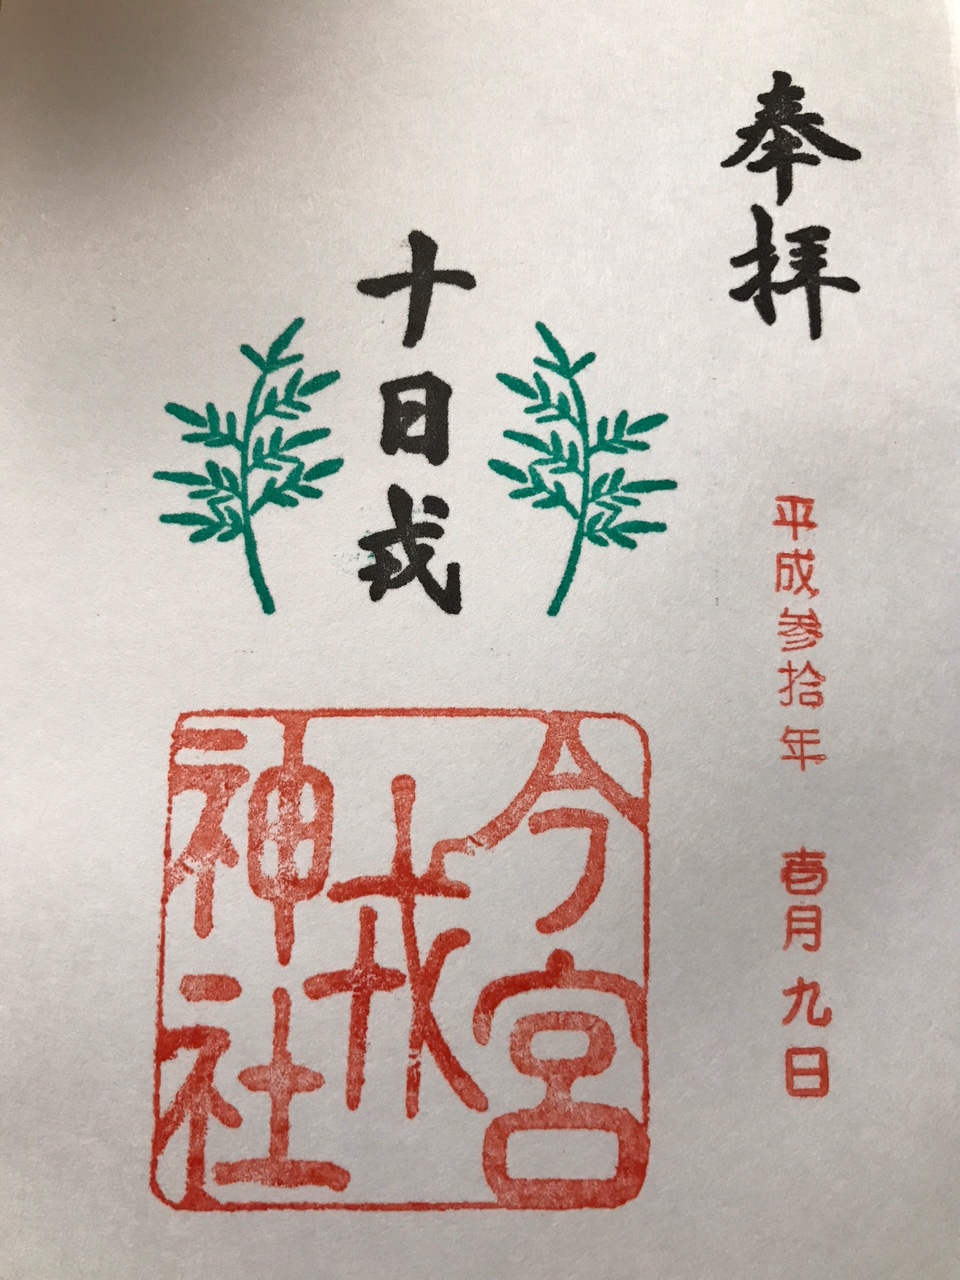 奉拝
平成参拾年 壱月九日
十日戎
今宮
戎
神社